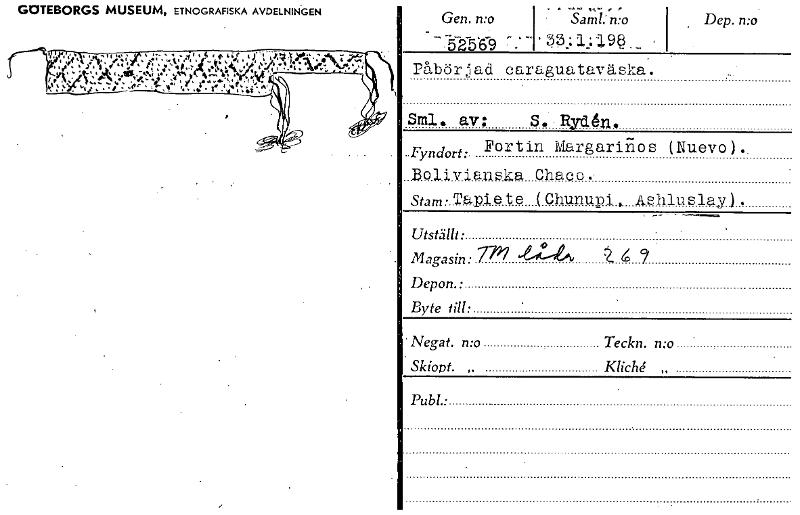 GÖTEBORGS MUSEUM, ETNOGRAFISKA AVDELNINGEN
Gen. n:o Saml. n:o Dep. n:o
52569 33:1:198
Påbörjad caraguataväska.
Sml. av: S. Rydén.
Fyndort: Fortin Margariños (Nuevo).
Bolivianska Chaco.
Stam: Tapiete (Chunupi, Ashluslay).
Utställt:
Magasin: TM låda 269
Depon.:
Byte till:
Negat. n:o Teckn. n:o
Skiopt. „ Kliché „
Publ.: